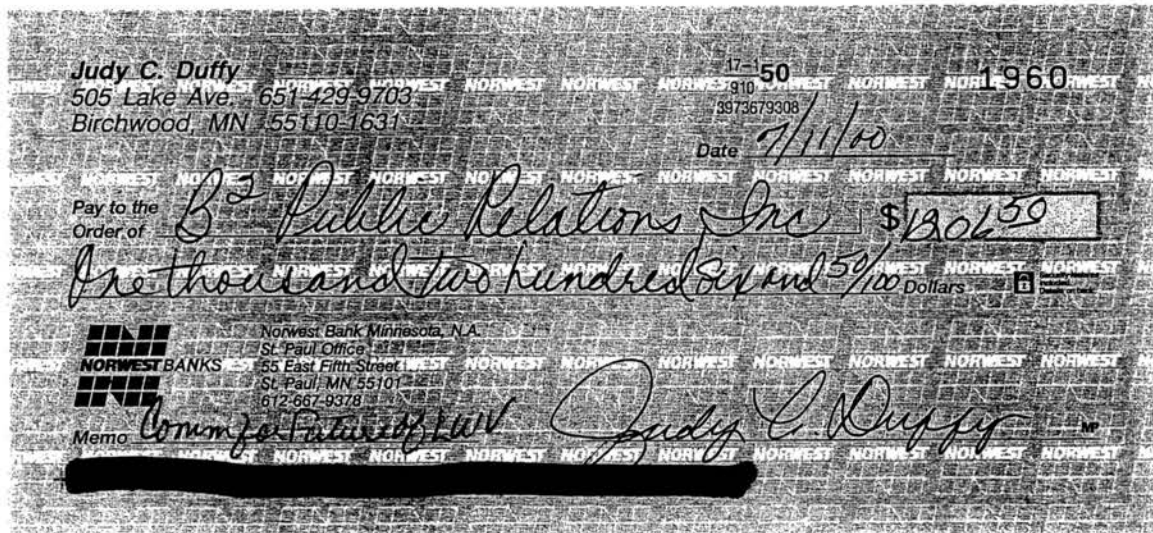 Judy C. Duffy
505 Lake Ave. 651-429-9703
Birchwood, MN 55110-1631
17-1 50
910
3973679308
1960
Date 7/11/00
Pay to the
Order of B² Public Relations Inc $ 1206 50
One thousand two hundred six and 50/100 Dollars
Details on back.
NORWEST BANKS
Norwest Bank Minnesota, N.A.
St. Paul Office
55 East Fifth Street
St. Paul, MN 55101
612-667-9378
Memo Comm for Future of LWV Judy C Duffy MP